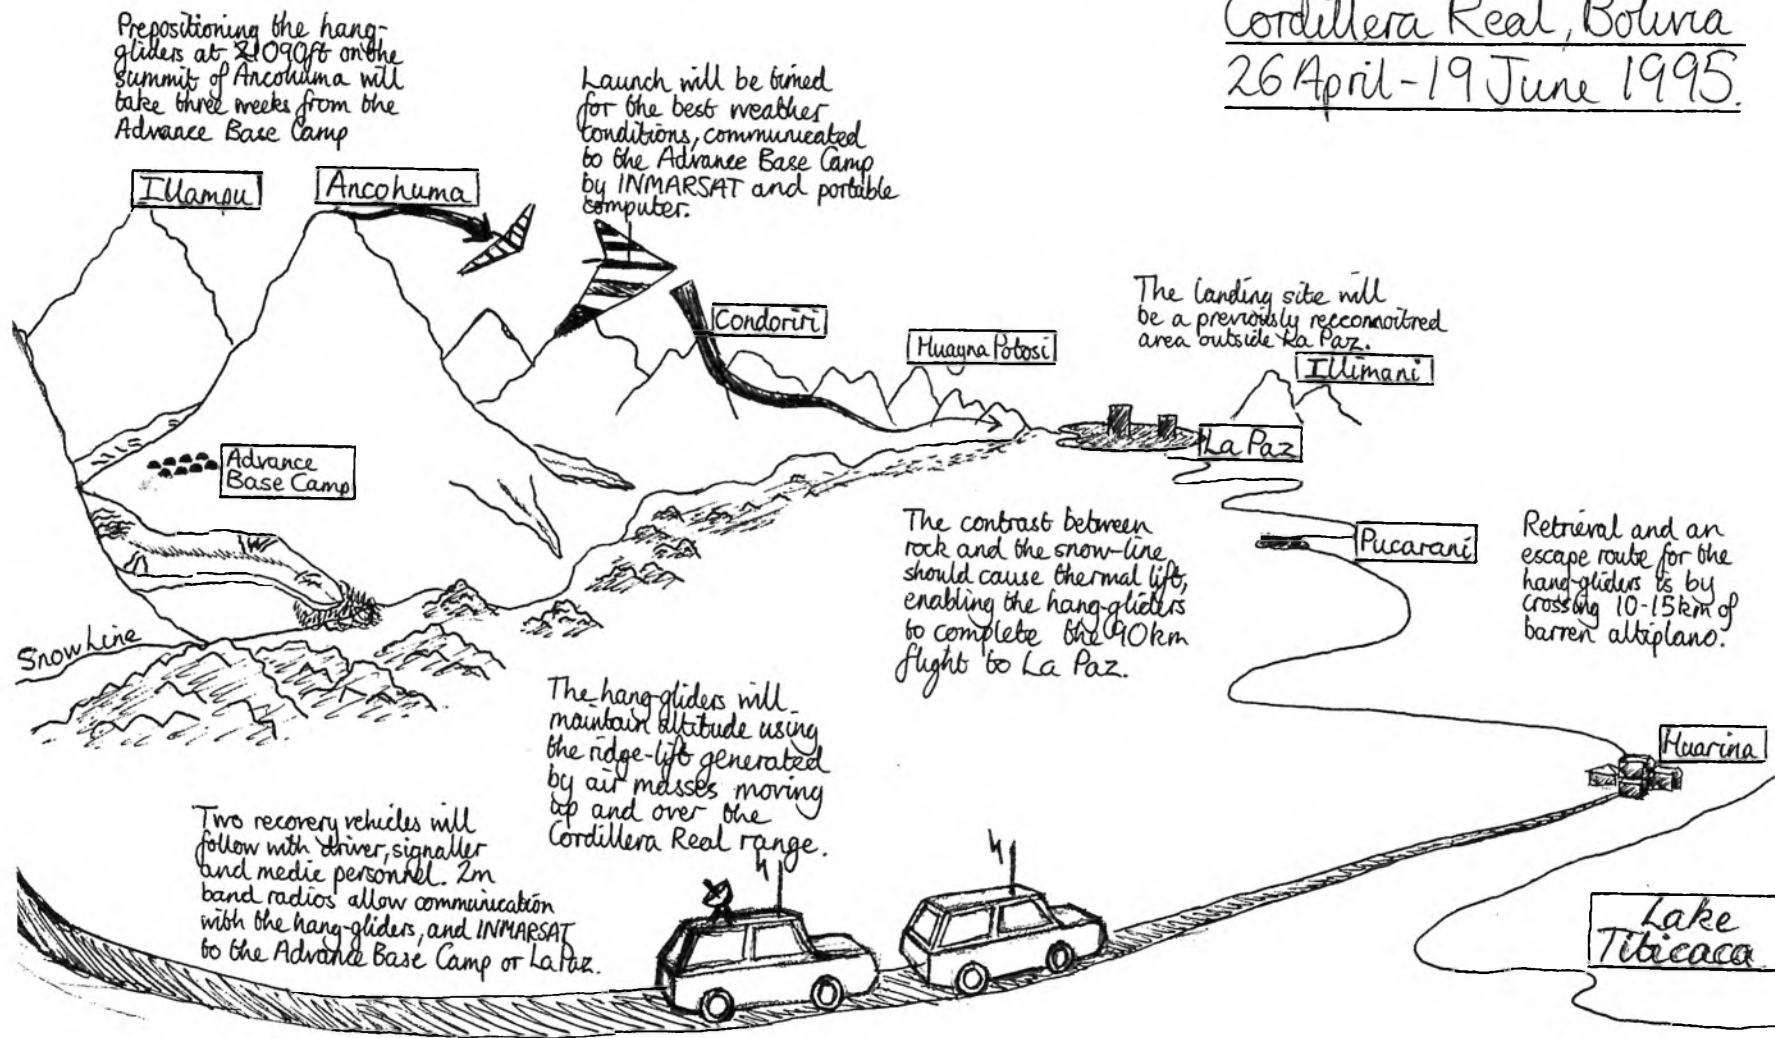 Cordillera Real, Bolivia
26 April-19 June 1995.
Prepositioning the hang-
gliders at 21090ft on the
summit of Ancohuma will
take three weeks from the
Advance Base Camp
Launch will be timed
for the best weather
conditions, communicated
to the Advance Base Camp
by INMARSAT and portable
computer.
Illampu
Ancohuma
Condoriri
Huayna Potosi
The landing site will
be a previously reconnoitred
area outside La Paz.
Illimani
La Paz
Advance
Base Camp
The contrast between
rock and the snow-line
should cause thermal lift,
enabling the hang-gliders
to complete the 90km
flight to La Paz.
Pucarani
Retrieval and an
escape route for the
hang-gliders is by
crossing 10-15km of
barren altiplano.
Snow Line
The hang-gliders will
maintain altitude using
the ridge-lift generated
by air masses moving
up and over the
Cordillera Real range.
Huarina
Two recovery vehicles will
follow with driver, signaller
and medic personnel. 2m
band radios allow communication
with the hang-gliders, and INMARSAT
to the Advance Base Camp or La Paz.
Lake
Titicaca